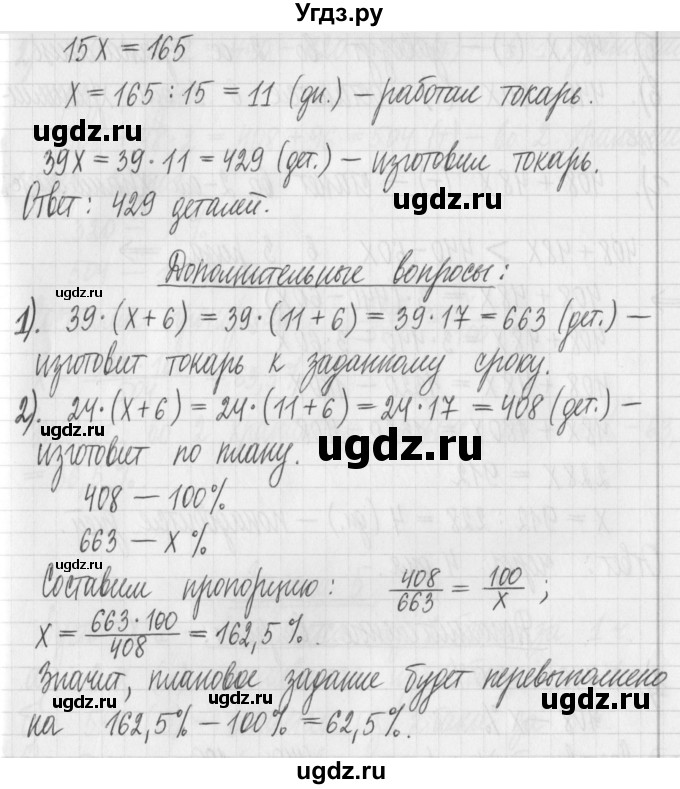 Угдз.ру
15x = 165
x = 165 : 15 = 11 (дн.) – работал токарь.
ugdz.ru
39x = 39 · 11 = 429 (дет.) – изготовил токарь.
ugdz.ru
Ответ: 429 деталей.
ugdz.ru
Дополнительные вопросы:
ugdz.ru
1). 39 · (x + 6) = 39 · (11 + 6) = 39 · 17 = 663 (дет.) –
изготовит токарь к заданному сроку.
2). 24 · (x + 6) = 24 · (11 + 6) = 24 · 17 = 408 (дет.) –
ugdz.ru
ugdz.ru
изготовит по плану.
408 – 100%
663 – x %
ugdz.ru
ugdz.ru
Составим пропорцию: 408/663 = 100/x ;
x = 663 · 100/408 = 162,5 %.
Значит, плановое задание будет перевыполнено
ugdz.ru
ugdz.ru
ugdz.ru
на 162,5% – 100% = 62,5%.
ugdz.ru